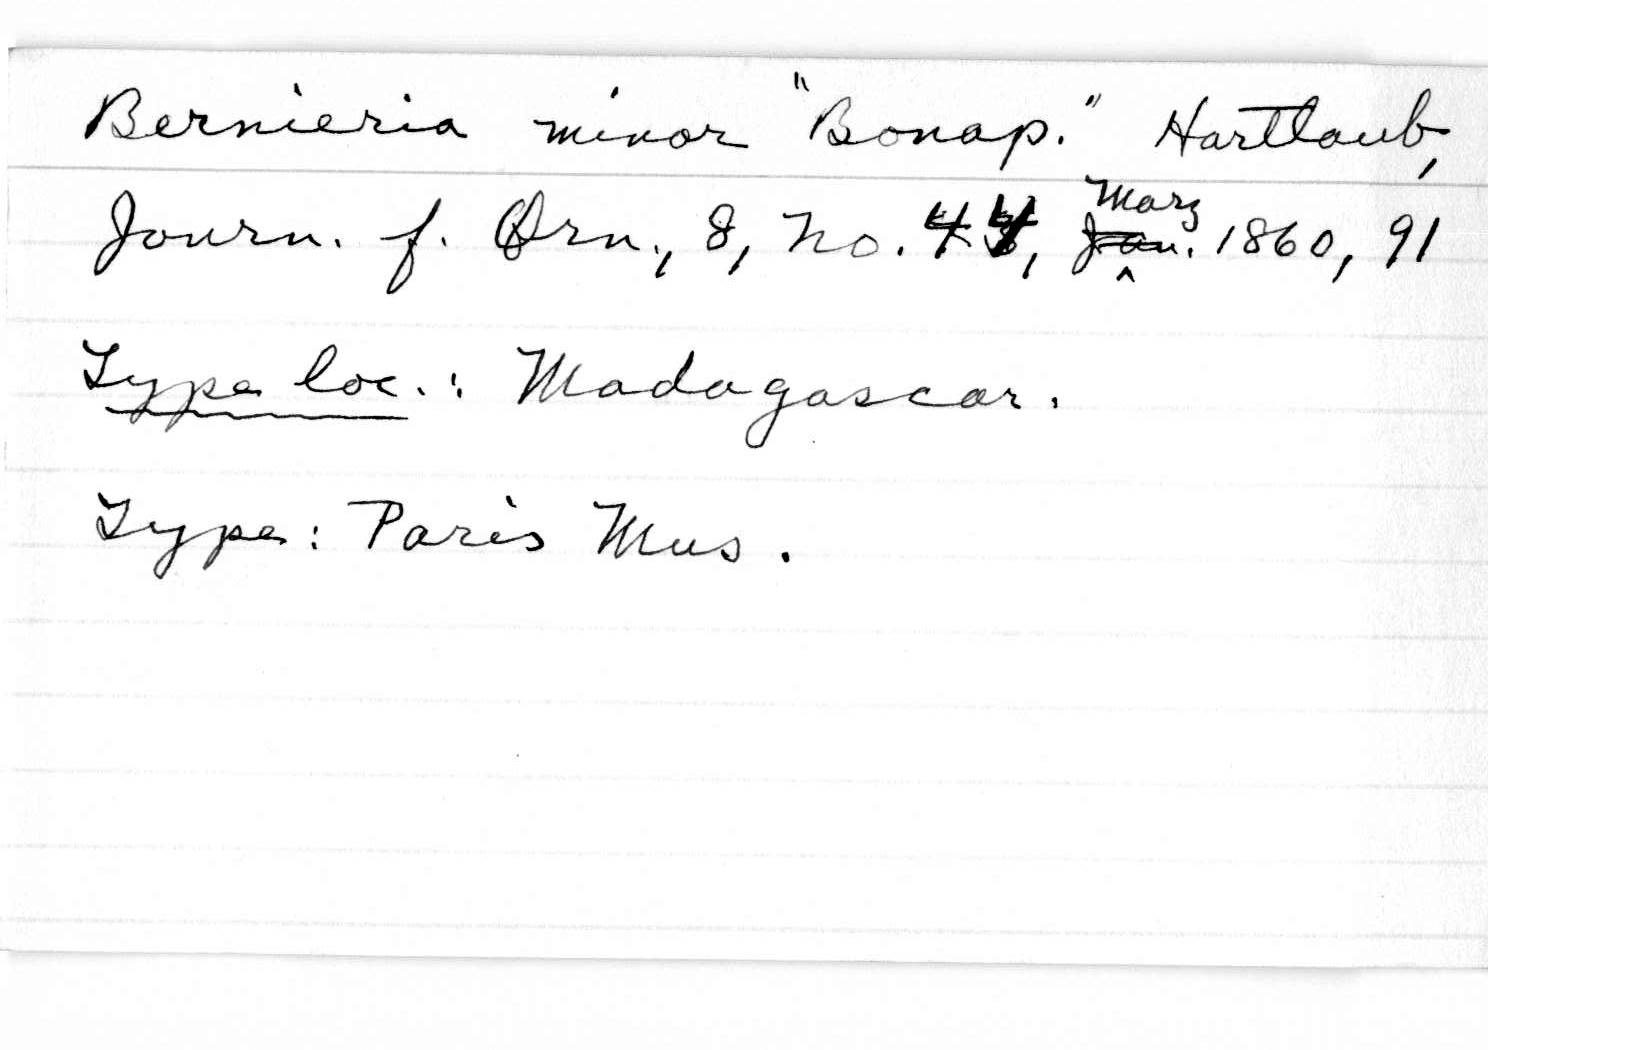 Bernieria minor "Bonap." Hartlaub,
Journ. f. Orn., 8, No. 44, Marz 1860, 91
Type loc.: Madagascar.
Type: Paris Mus.